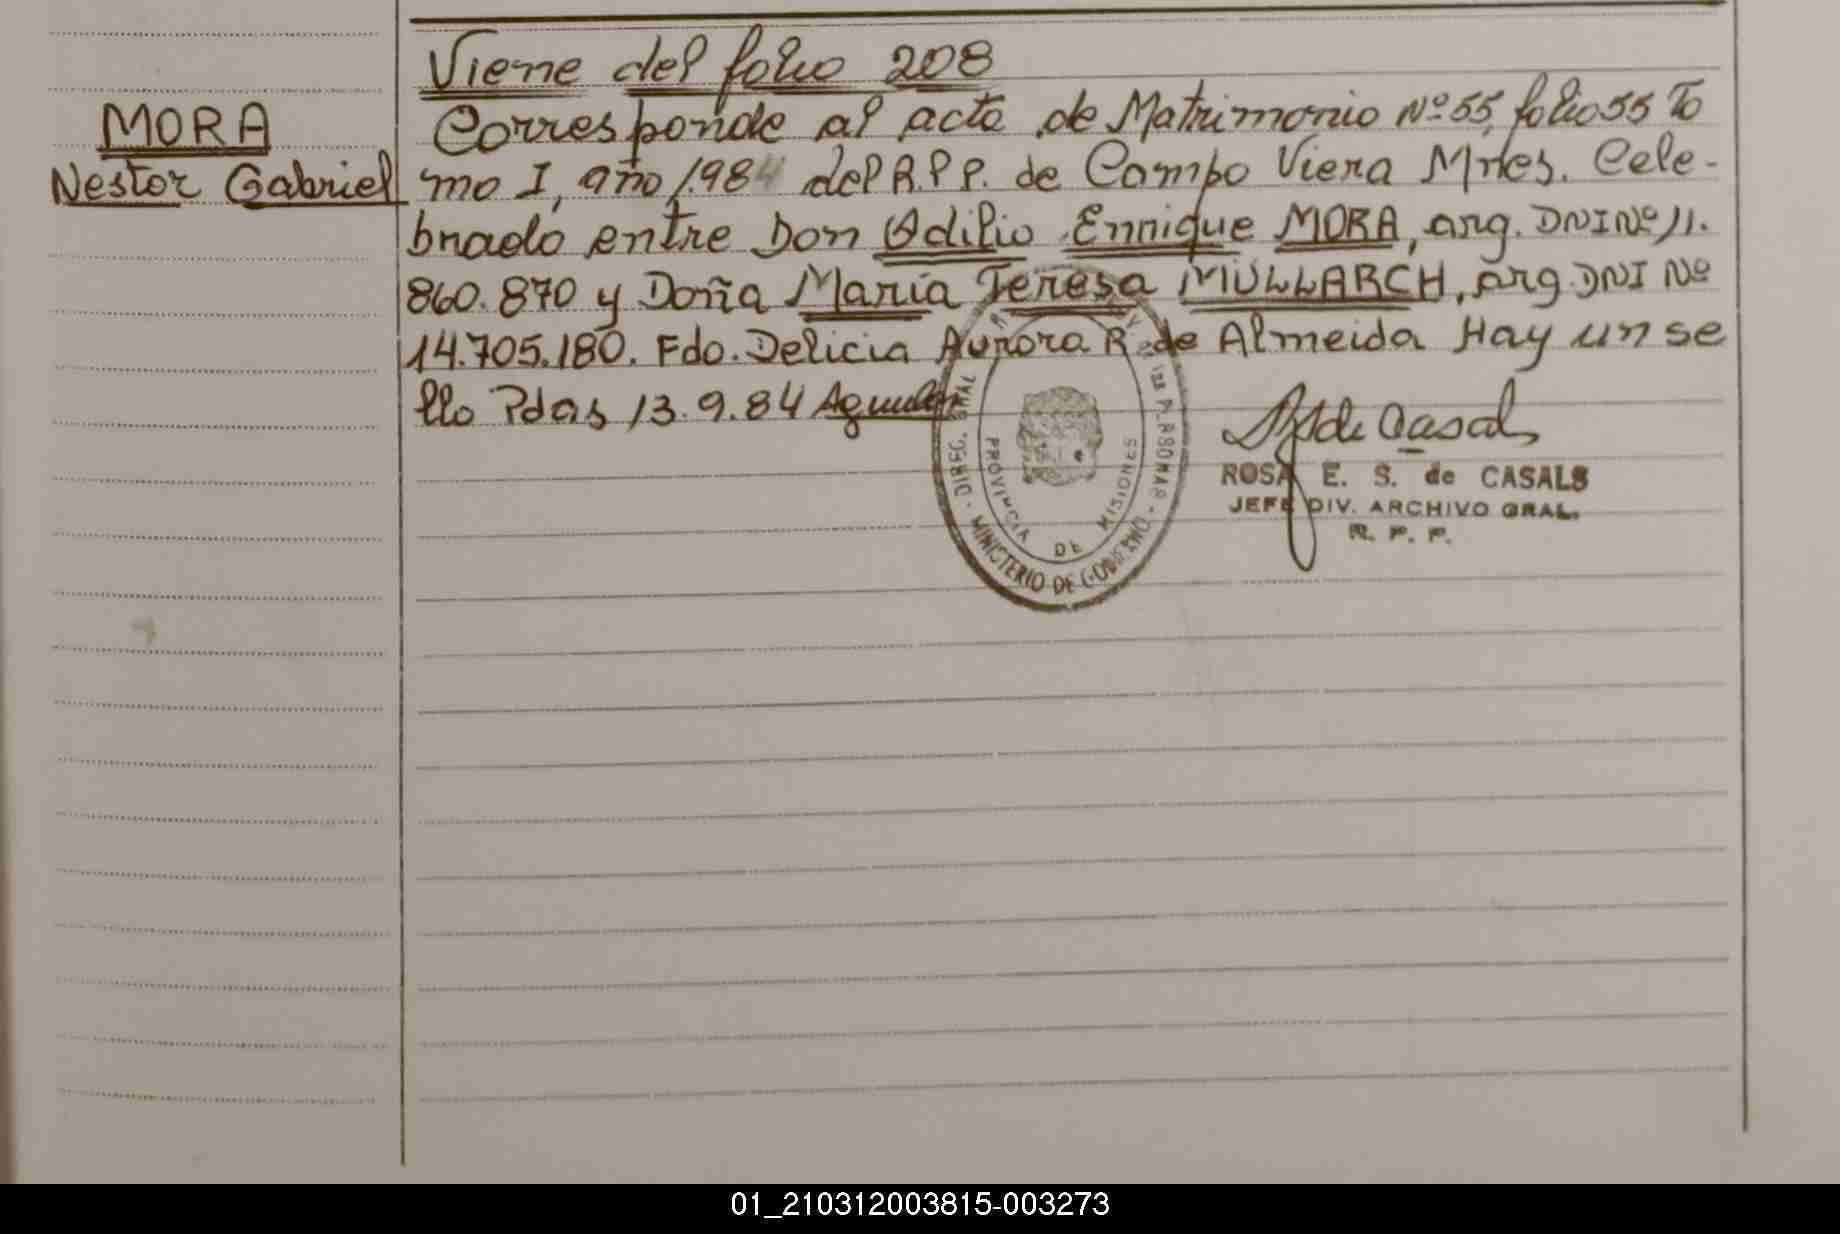 Viene del folio 208
MORA
Nestor Gabriel
Corresponde al acta de Matrimonio Nº 55, folio 55 To
mo I, año 1.984 del R.P.P. de Campo Viera Mnes. Cele-
brado entre Don Odilio Enrique MORA, arg. DNI Nº 11.
860.870 y Doña María Teresa MÜLLARCH, arg. DNI Nº
14.705.180. Fdo. Delicia Aurora R. de Almeida Hay un se
llo Pdas 13.9.84
DIREC. GRAL
PROVINCIA DE MISIONES
MINISTERIO DE GOBIERNO
ROSA E. S. de CASALS
JEFE DIV. ARCHIVO GRAL.
R. P. P.
01_210312003815-003273